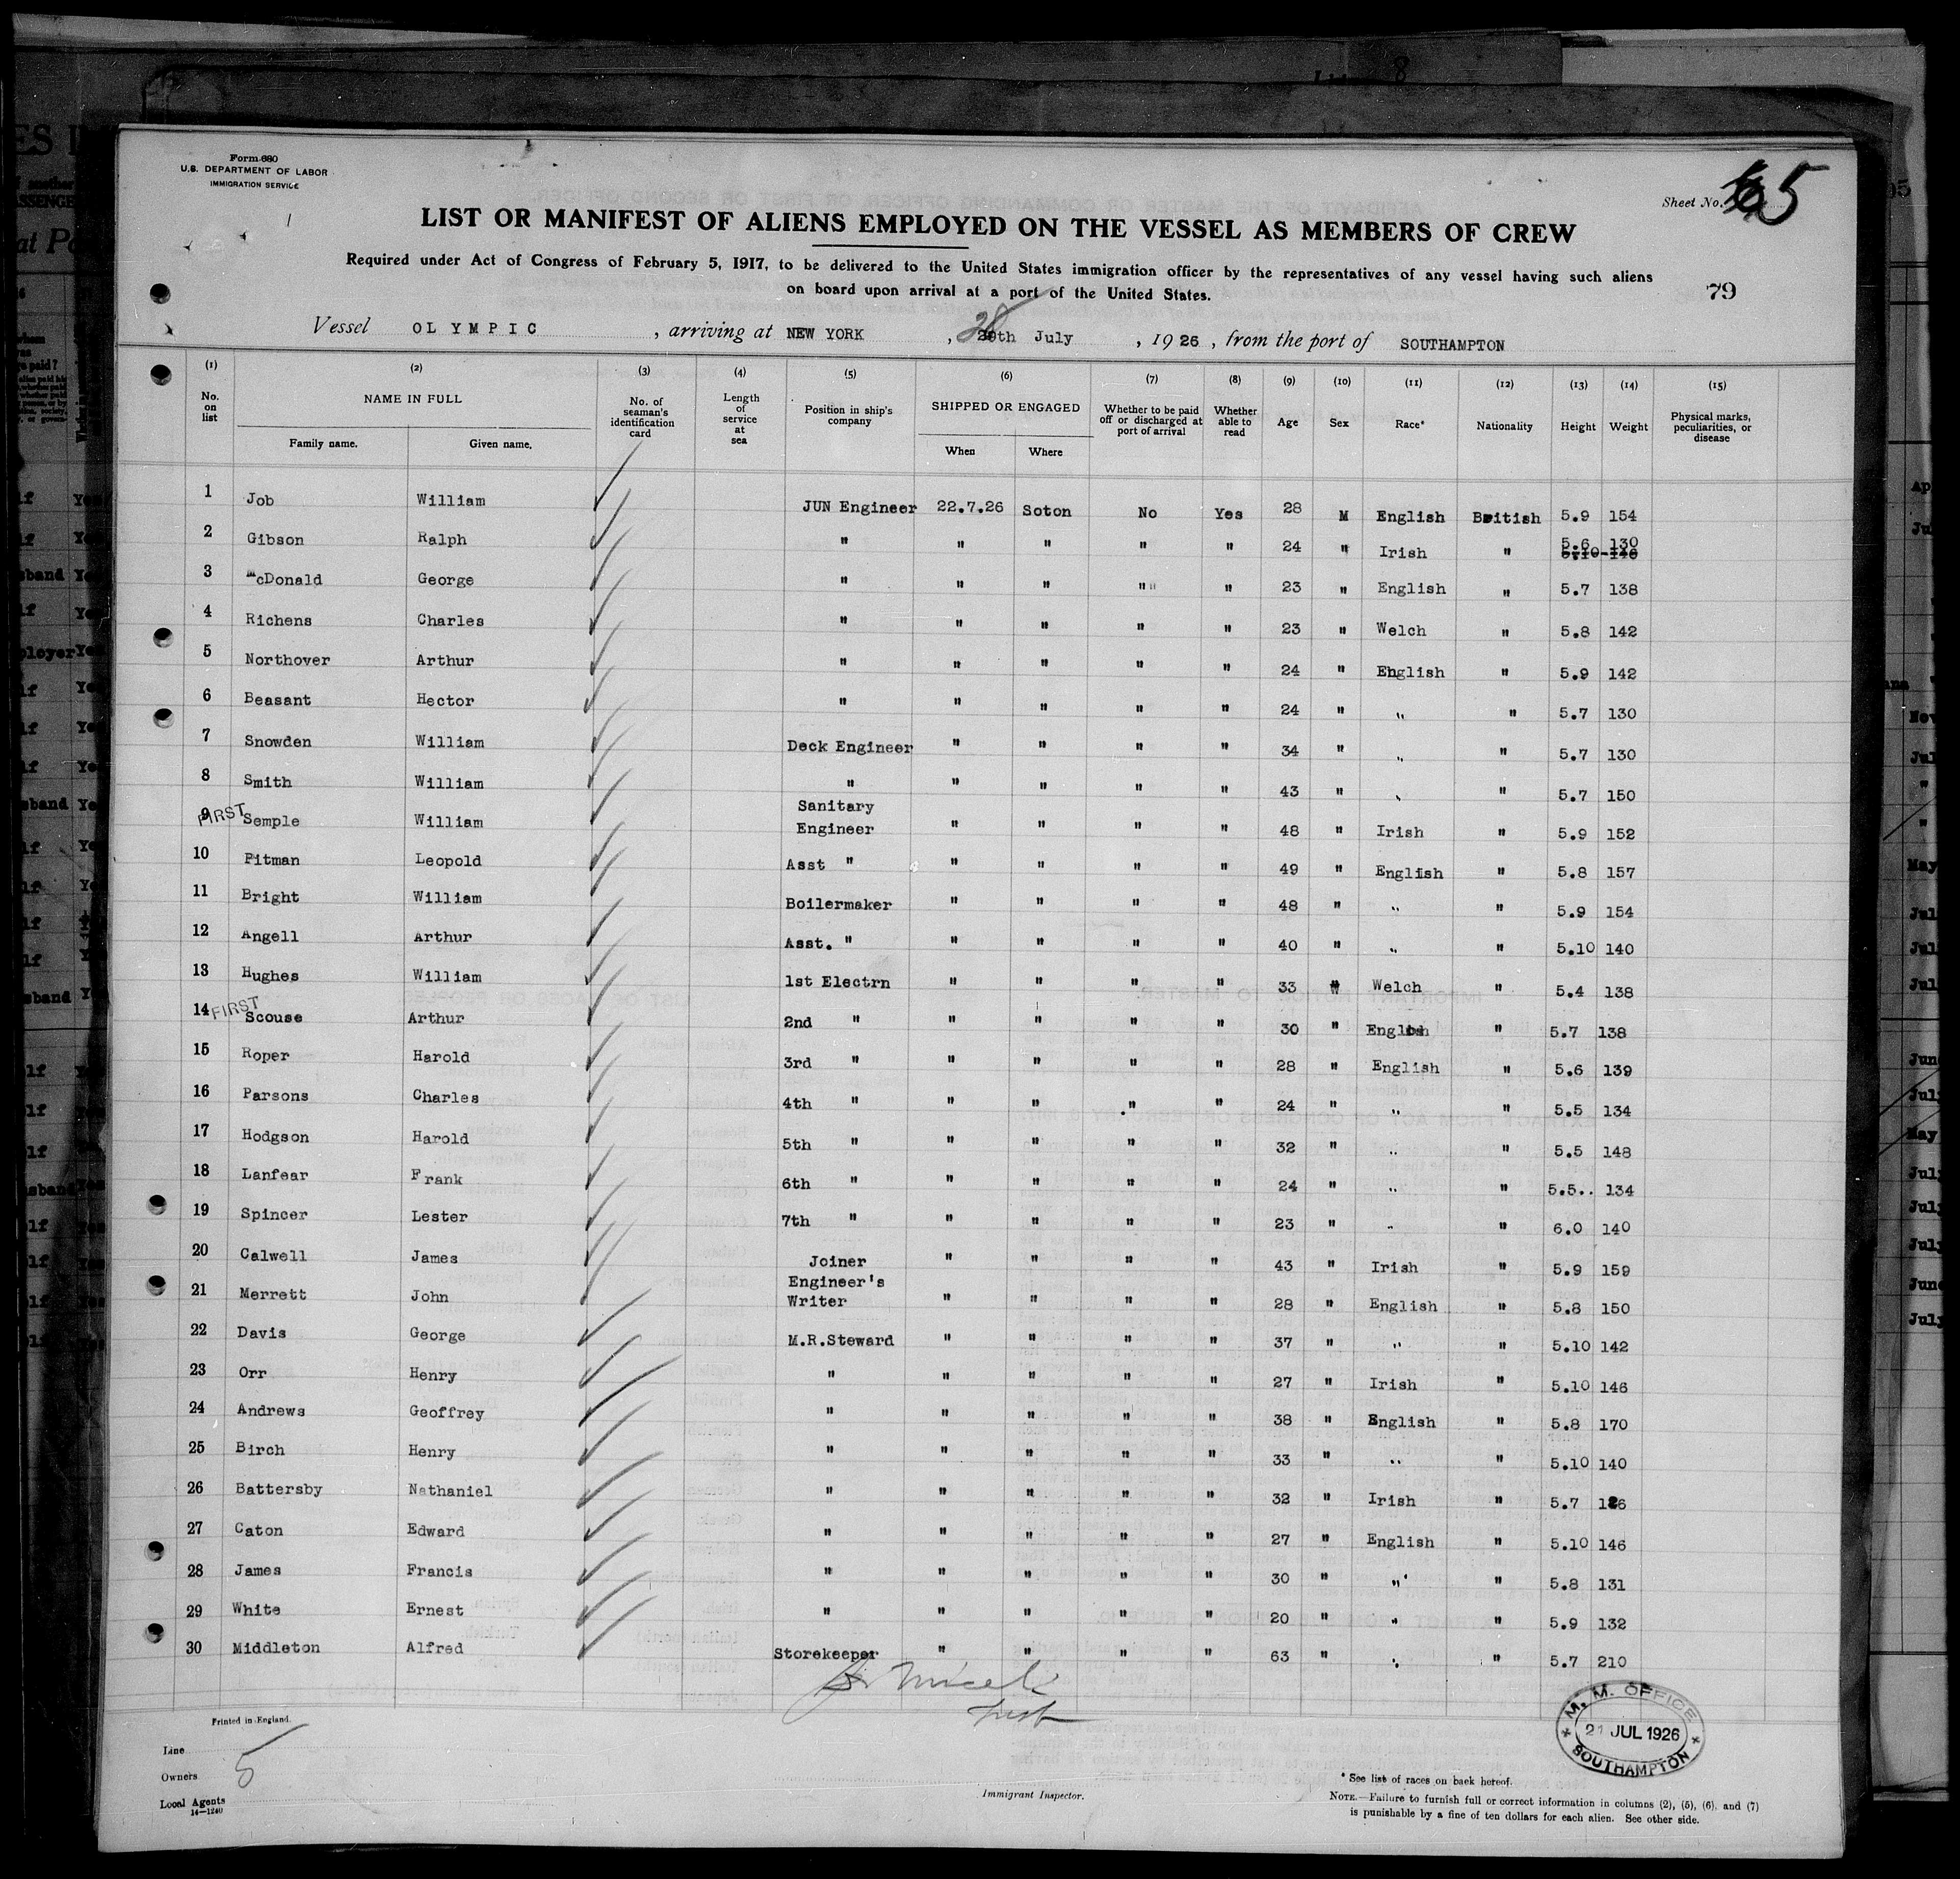 Form 680
U.S. DEPARTMENT OF LABOR
IMMIGRATION SERVICE
Sheet No. 5
LIST OR MANIFEST OF ALIENS EMPLOYED ON THE VESSEL AS MEMBERS OF CREW
Required under Act of Congress of February 5, 1917, to be delivered to the United States immigration officer by the representatives of any vessel having such aliens
on board upon arrival at a port of the United States.
79
Vessel OLYMPIC, arriving at NEW YORK, 28th July, 1926, from the port of SOUTHAMPTON
(1) (2) (3) (4) (5) (6) (7) (8) (9) (10) (11) (12) (13) (14) (15)
No. on list NAME IN FULL Family name. Given name. No. of seaman's identification card Length of service at sea Position in ship's company SHIPPED OR ENGAGED When Where Whether to be paid off or discharged at port of arrival Whether able to read Age Sex Race* Nationality Height Weight Physical marks, peculiarities, or disease
1 Job William JUN Engineer 22.7.26 Soton No Yes 28 M English British 5.9 154
2 Gibson Ralph " " " " " 24 " Irish " 5.6 130
3 McDonald George " " " " " " 23 " English " 5.7 138
4 Richens Charles " " " " " 23 " Welch " 5.8 142
5 Northover Arthur " " " " " 24 " English " 5.9 142
6 Beasant Hector " " " " " 24 " " " 5.7 130
7 Snowden William Deck Engineer " " " " 34 " " " 5.7 130
8 Smith William " " " " " 43 " " " 5.7 150
9 FIRST Semple William Sanitary Engineer " " " " 48 " Irish " 5.9 152
10 Pitman Leopold Asst " " " " " 49 " English " 5.8 157
11 Bright William Boilermaker " " " " 48 " " " 5.9 154
12 Angell Arthur Asst. " " " " " 40 " " " 5.10 140
13 Hughes William 1st Electrn " " " " 33 " Welch " 5.4 138
14 FIRST Scouse Arthur 2nd " " " " " 30 " English " 5.7 138
15 Roper Harold 3rd " " " " " 28 " English " 5.6 139
16 Parsons Charles 4th " " " " " 24 " " " 5.5 134
17 Hodgson Harold 5th " " " " " 32 " " " 5.5 148
18 Lanfear Frank 6th " " " " " 24 " " " 5.5.. 134
19 Spincer Lester 7th " " " " " 23 " " " 6.0 140
20 Calwell James Joiner " " " " 43 " Irish " 5.9 159
21 Merrett John Engineer's Writer " " " " 28 " English " 5.8 150
22 Davis George M.R.Steward " " " " 37 " " " 5.10 142
23 Orr Henry " " " " " 27 " Irish " 5.10 146
24 Andrews Geoffrey " " " " " 38 " English " 5.8 170
25 Birch Henry " " " " " 33 " " " 5.10 140
26 Battersby Nathaniel " " " " " 32 " Irish " 5.7 126
27 Caton Edward " " " " " 27 " English " 5.10 146
28 James Francis " " " " " 30 " " " 5.8 131
29 White Ernest " " " " " 20 " " " 5.9 132
30 Middleton Alfred Storekeeper " " " " 63 " " " 5.7 210
Printed in England.
Line
Owners 5
Local Agents
14—1240
Immigrant Inspector.
M. M. OFFICE
21 JUL 1926
SOUTHAMPTON
* See list of races on back hereof.
NOTE.—Failure to furnish full or correct information in columns (2), (5), (6), and (7)
is punishable by a fine of ten dollars for each alien. See other side.